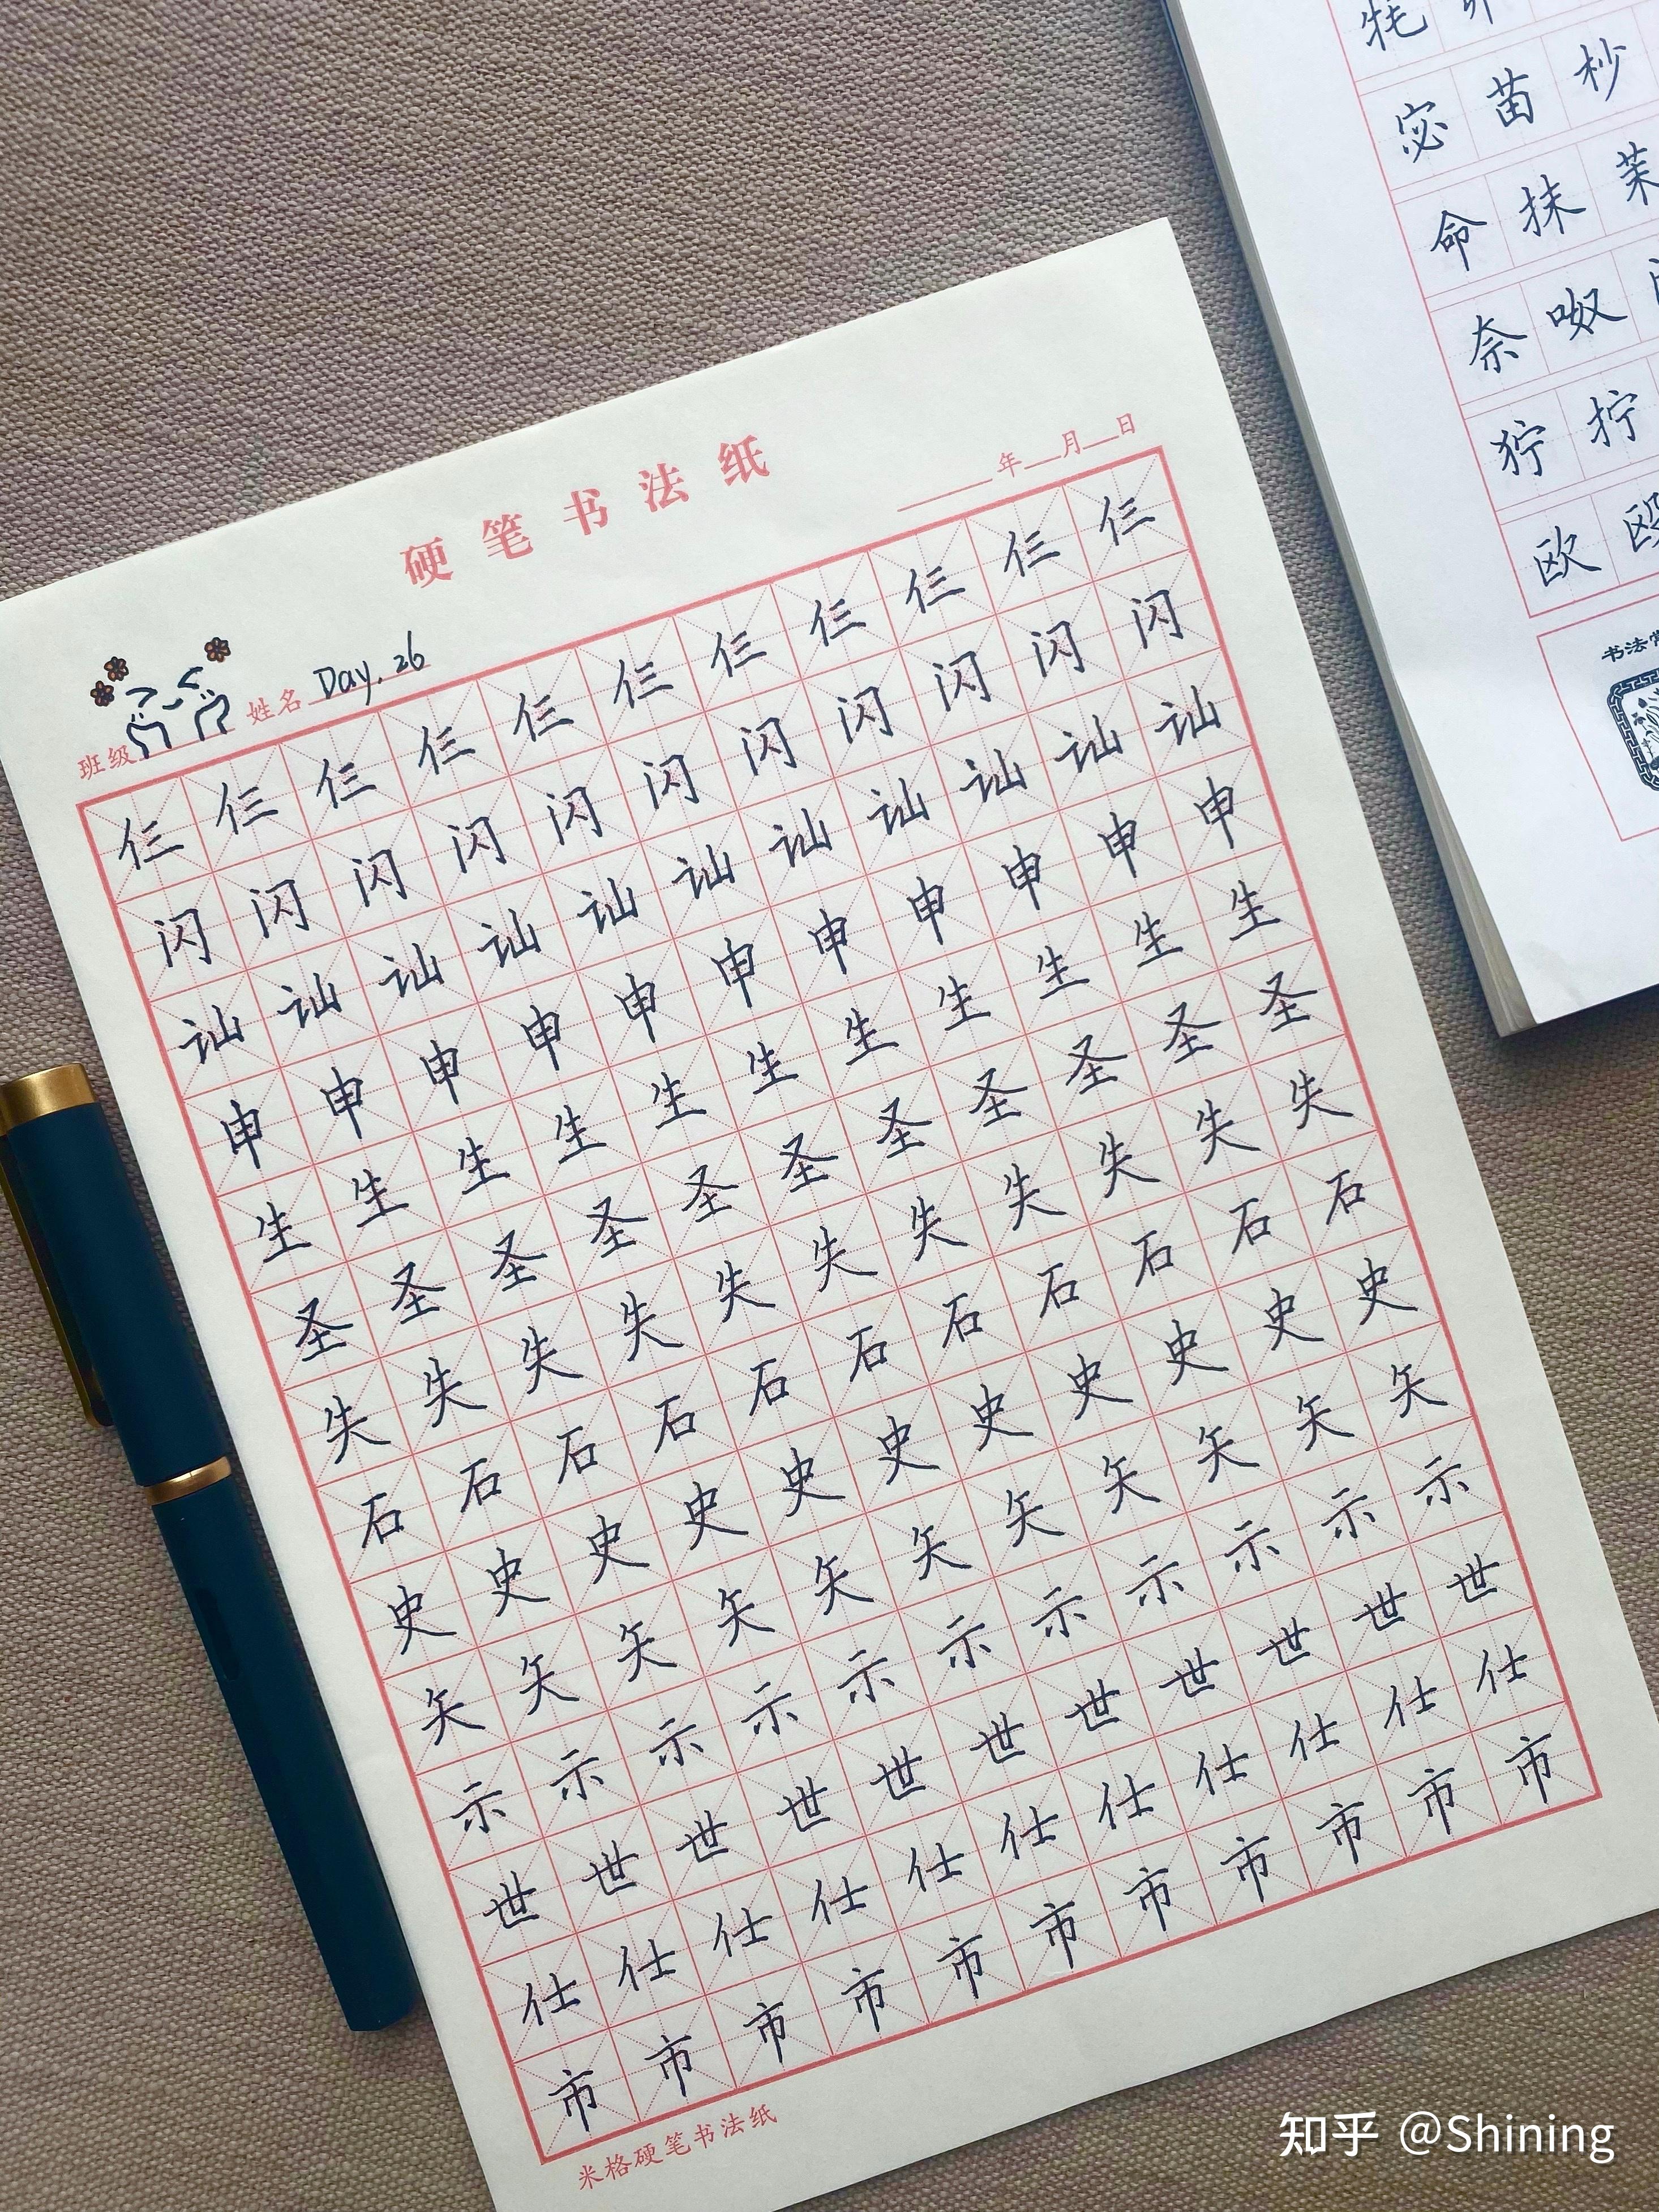 硬笔书法纸
年 月 日
班级 姓名 Day.26
仨仨仨仨仨仨仨仨仨仨仨
闪闪闪闪闪闪闪闪闪闪闪
讪讪讪讪讪讪讪讪讪讪讪
申申申申申申申申申申申
生生生生生生生生生生生
圣圣圣圣圣圣圣圣圣圣圣
失失失失失失失失失失失
石石石石石石石石石石石
史史史史史史史史史史史
矢矢矢矢矢矢矢矢矢矢矢
示示示示示示示示示示示
世世世世世世世世世世世
仕仕仕仕仕仕仕仕仕仕仕
市市市市市市市市市市市
米格硬笔书法纸
牦
宓苗杪
命抹茉
奈呶
狞拧
欧殴
书法
知乎 @Shining